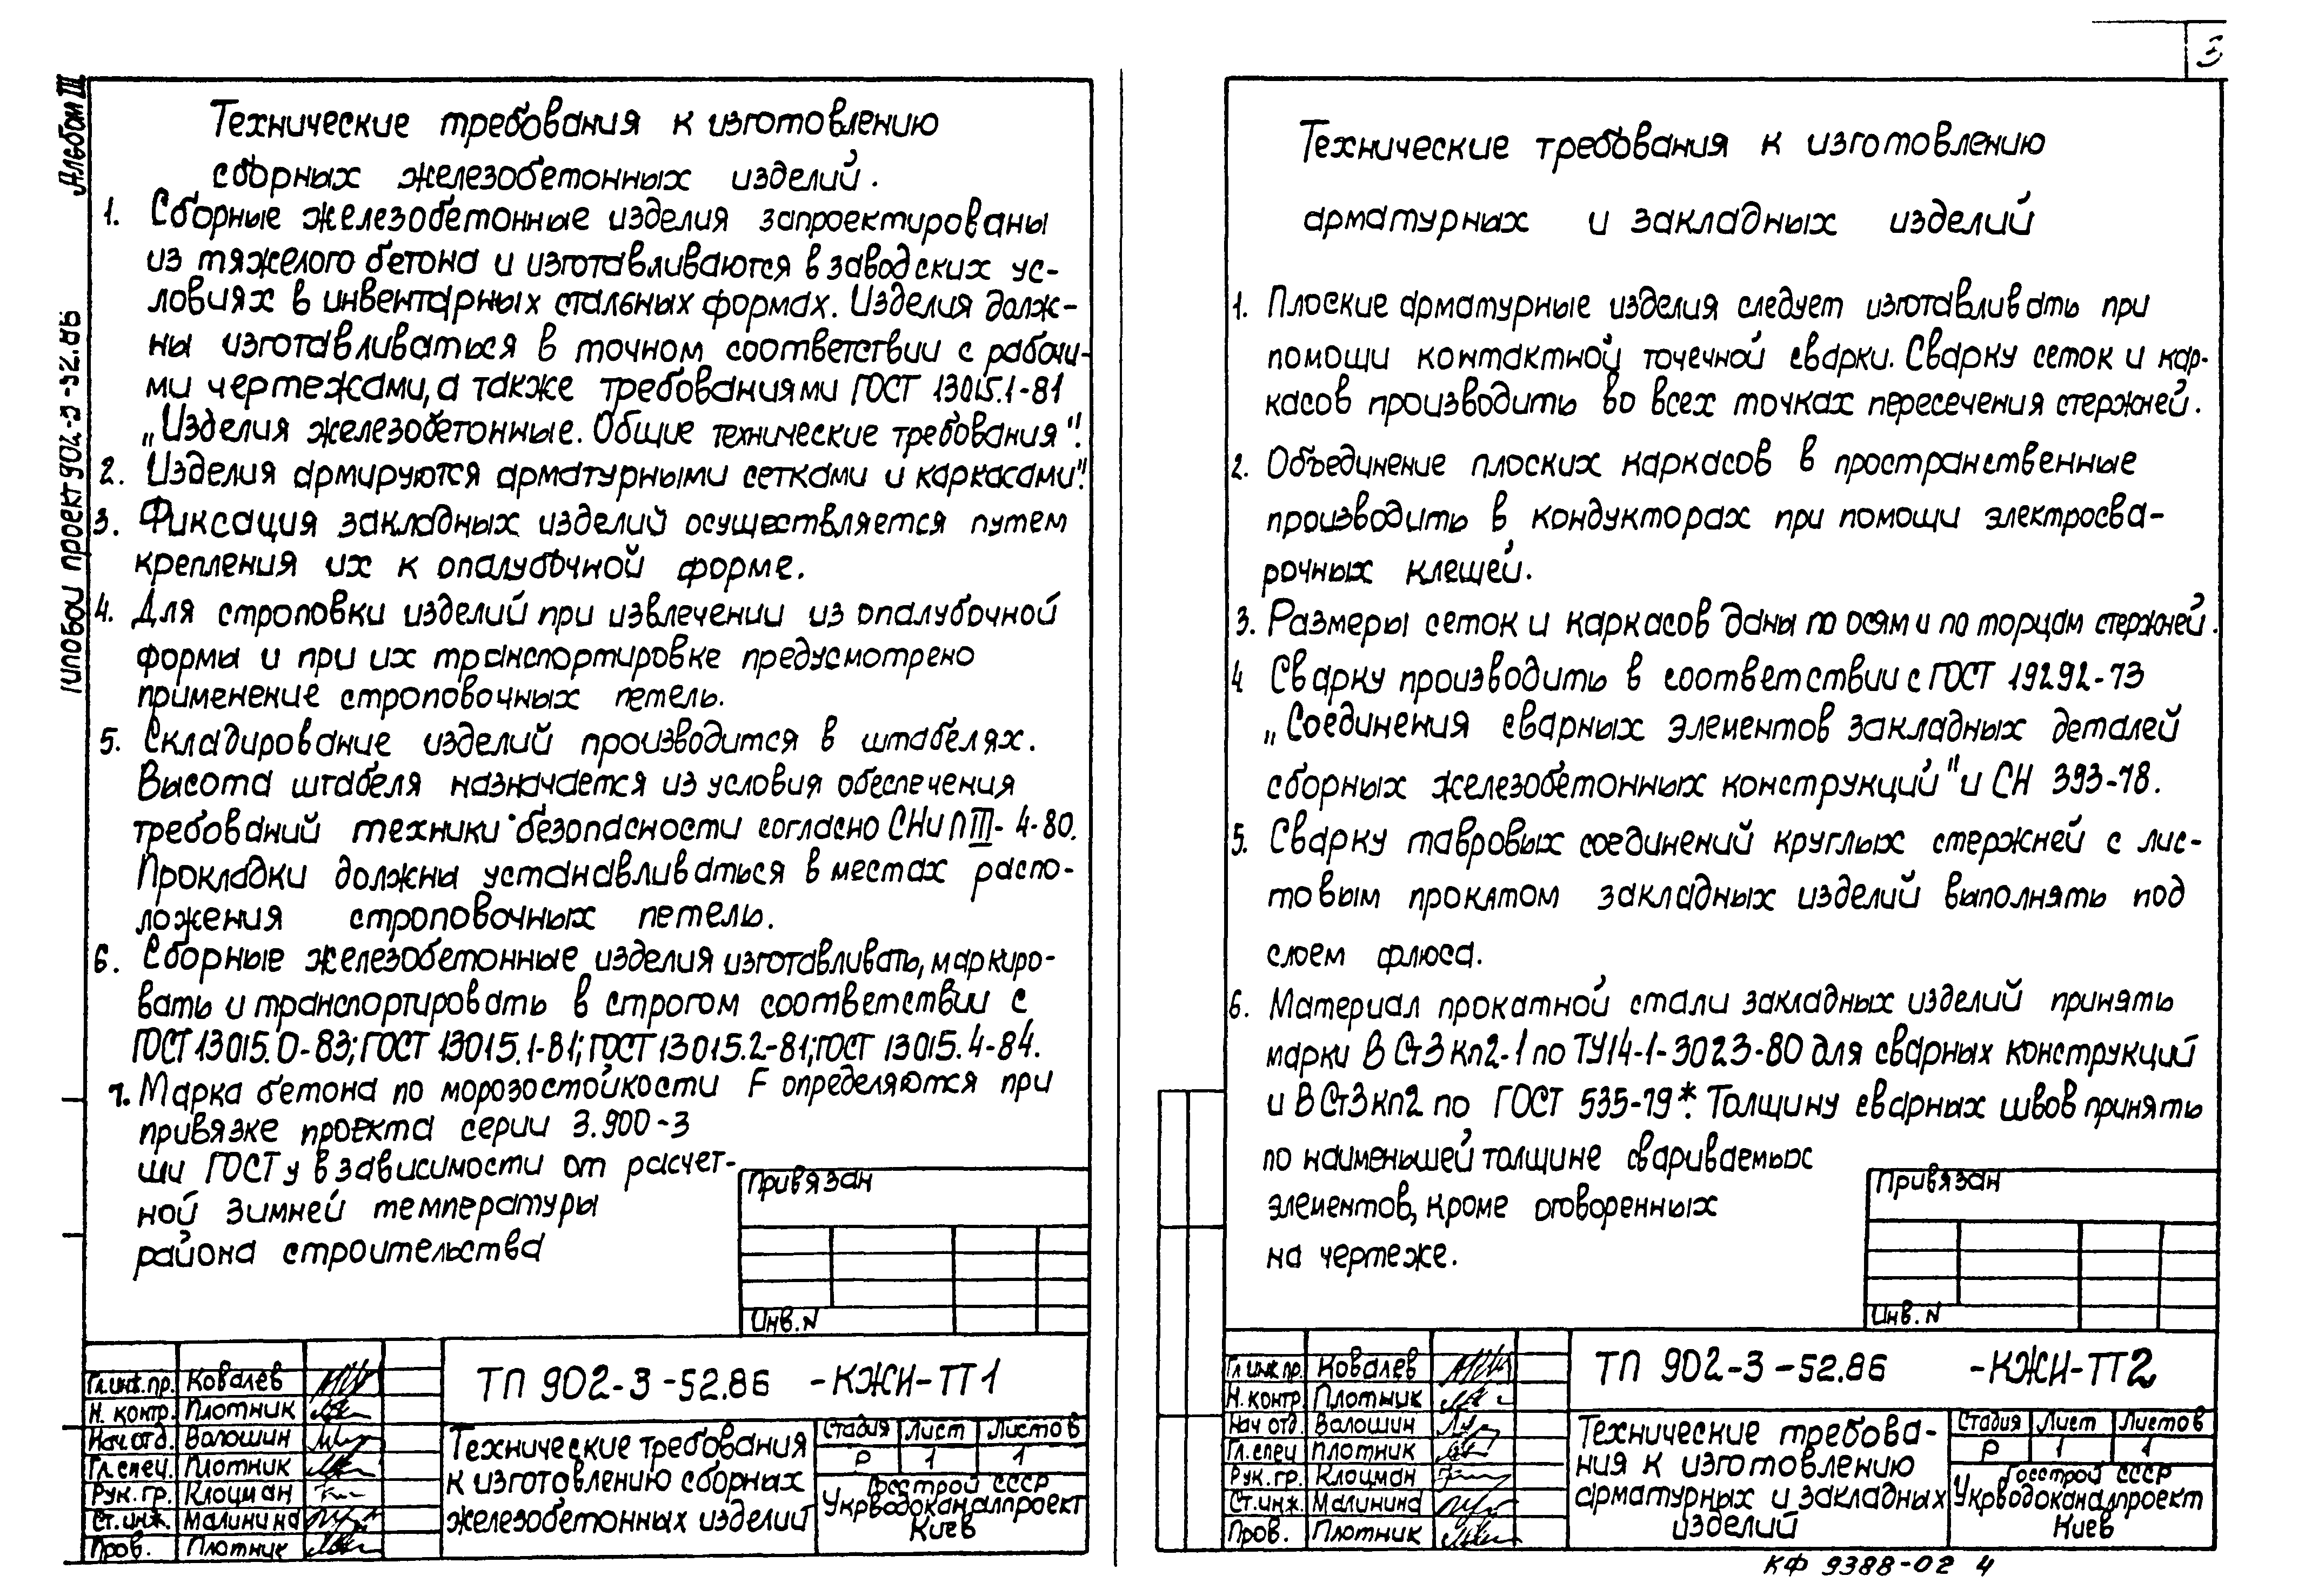 3
Альбом III
Типовой проект 902-3-52.86
Технические требования к изготовлению
сборных железобетонных изделий.
1. Сборные железобетонные изделия запроектированы
из тяжелого бетона и изготавливаются в заводских ус-
ловиях в инвентарных стальных формах. Изделия долж-
ны изготавливаться в точном соответствии с рабочи-
ми чертежами, а также требованиями ГОСТ 13015.1-81
„Изделия железобетонные. Общие технические требования".
2. Изделия армируются арматурными сетками и каркасами".
3. Фиксация закладных изделий осуществляется путем
крепления их к опалубочной форме.
4. Для строповки изделий при извлечении из опалубочной
формы и при их транспортировке предусмотрено
применение строповочных петель.
5. Складирование изделий производится в штабелях.
Высота штабеля назначается из условия обеспечения
требований техники безопасности согласно СНиП III-4-80.
Прокладки должны устанавливаться в местах распо-
ложения строповочных петель.
6. Сборные железобетонные изделия изготавливать, маркиро-
вать и транспортировать в строгом соответствии с
ГОСТ 13015.0-83; ГОСТ 13015.1-81; ГОСТ 13015.2-81; ГОСТ 13015.4-84.
7. Марка бетона по морозостойкости F определяются при
привязке проекта серии 3.900-3
или ГОСТ у в зависимости от расчет-
ной зимней температуры
района строительства
Привязан
Инв. N
Гл. инж. пр. Ковалев
Н. контр. Плотник
Нач отд. Волошин
Гл. спец. Плотник
Рук. гр. Клоцман
Ст. инж. Малинина
Пров. Плотник
ТП 902-3-52.86 -КЖИ-ТТ1
Технические требования
к изготовлению сборных
железобетонных изделий
Стадия Лист Листов
Р 1 1
Госстрой СССР
Укрводоканалпроект
Киев
Технические требования к изготовлению
арматурных и закладных изделий
1. Плоские арматурные изделия следует изготавливать при
помощи контактной точечной сварки. Сварку сеток и кар-
касов производить во всех точках пересечения стержней.
2. Объединение плоских каркасов в пространственные
производить в кондукторах при помощи электросва-
рочных клещей.
3. Размеры сеток и каркасов даны по осям и по торцам стержней.
4 Сварку производить в соответствии с ГОСТ 19292-73
„Соединения сварных элементов закладных деталей
сборных железобетонных конструкций" и СН 393-78.
5. Сварку тавровых соединений круглых стержней с лис-
товым прокатом закладных изделий выполнять под
слоем флюса.
6. Материал прокатной стали закладных изделий принять
марки В Ст3 кп2-1 по ТУ14-1-3023-80 для сварных конструкций
и В Ст3 кп2 по ГОСТ 535-79*. Толщину сварных швов принять
по наименьшей толщине свариваемых
элементов, кроме оговоренных
на чертеже.
Привязан
Инв. N
Гл инж пр. Ковалев
Н. контр. Плотник
Нач отд. Волошин
Гл. спец Плотник
Рук. гр. Клоцман
Ст. инж. Малинина
Пров. Плотник
ТП 902-3-52.86 -КЖИ-ТТ2
Технические требова-
ния к изготовлению
арматурных и закладных
изделий
Стадия Лист Листов
Р 1 1
Госстрой СССР
Укрводоканалпроект
Киев
КФ 9388-02 4